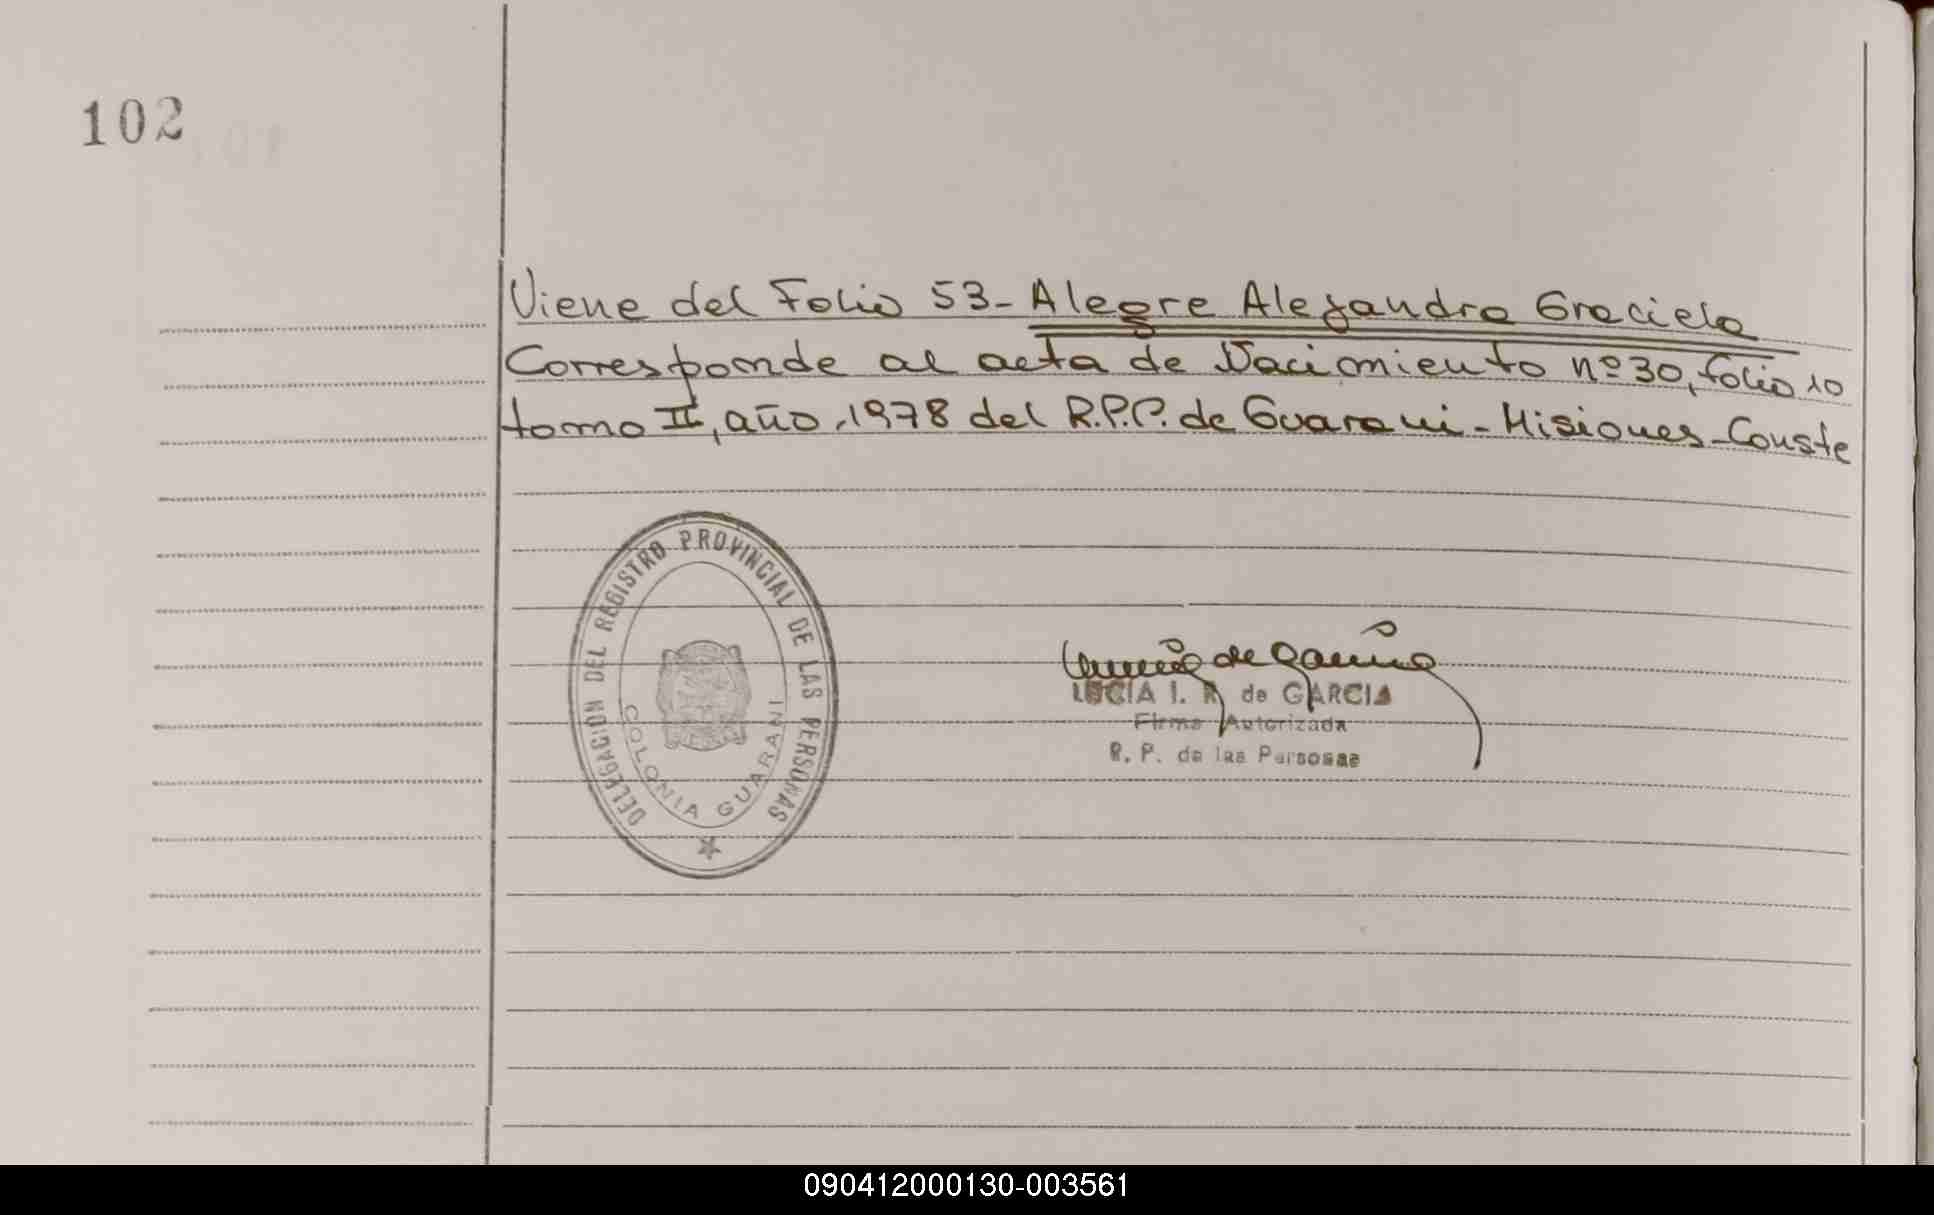 102
Viene del Folio 53 - Alegre Alejandra Graciela
Corresponde al acta de Nacimiento nº 30, folio 10
tomo II, año 1978 del R.P.P. de Guarani - Misiones - Conste
DELEGACION DEL REGISTRO PROVINCIAL DE LAS PERSONAS
COLONIA GUARANI
LUCIA I. R. de GARCIA
Firma Autorizada
R. P. de las Personas
090412000130-003561